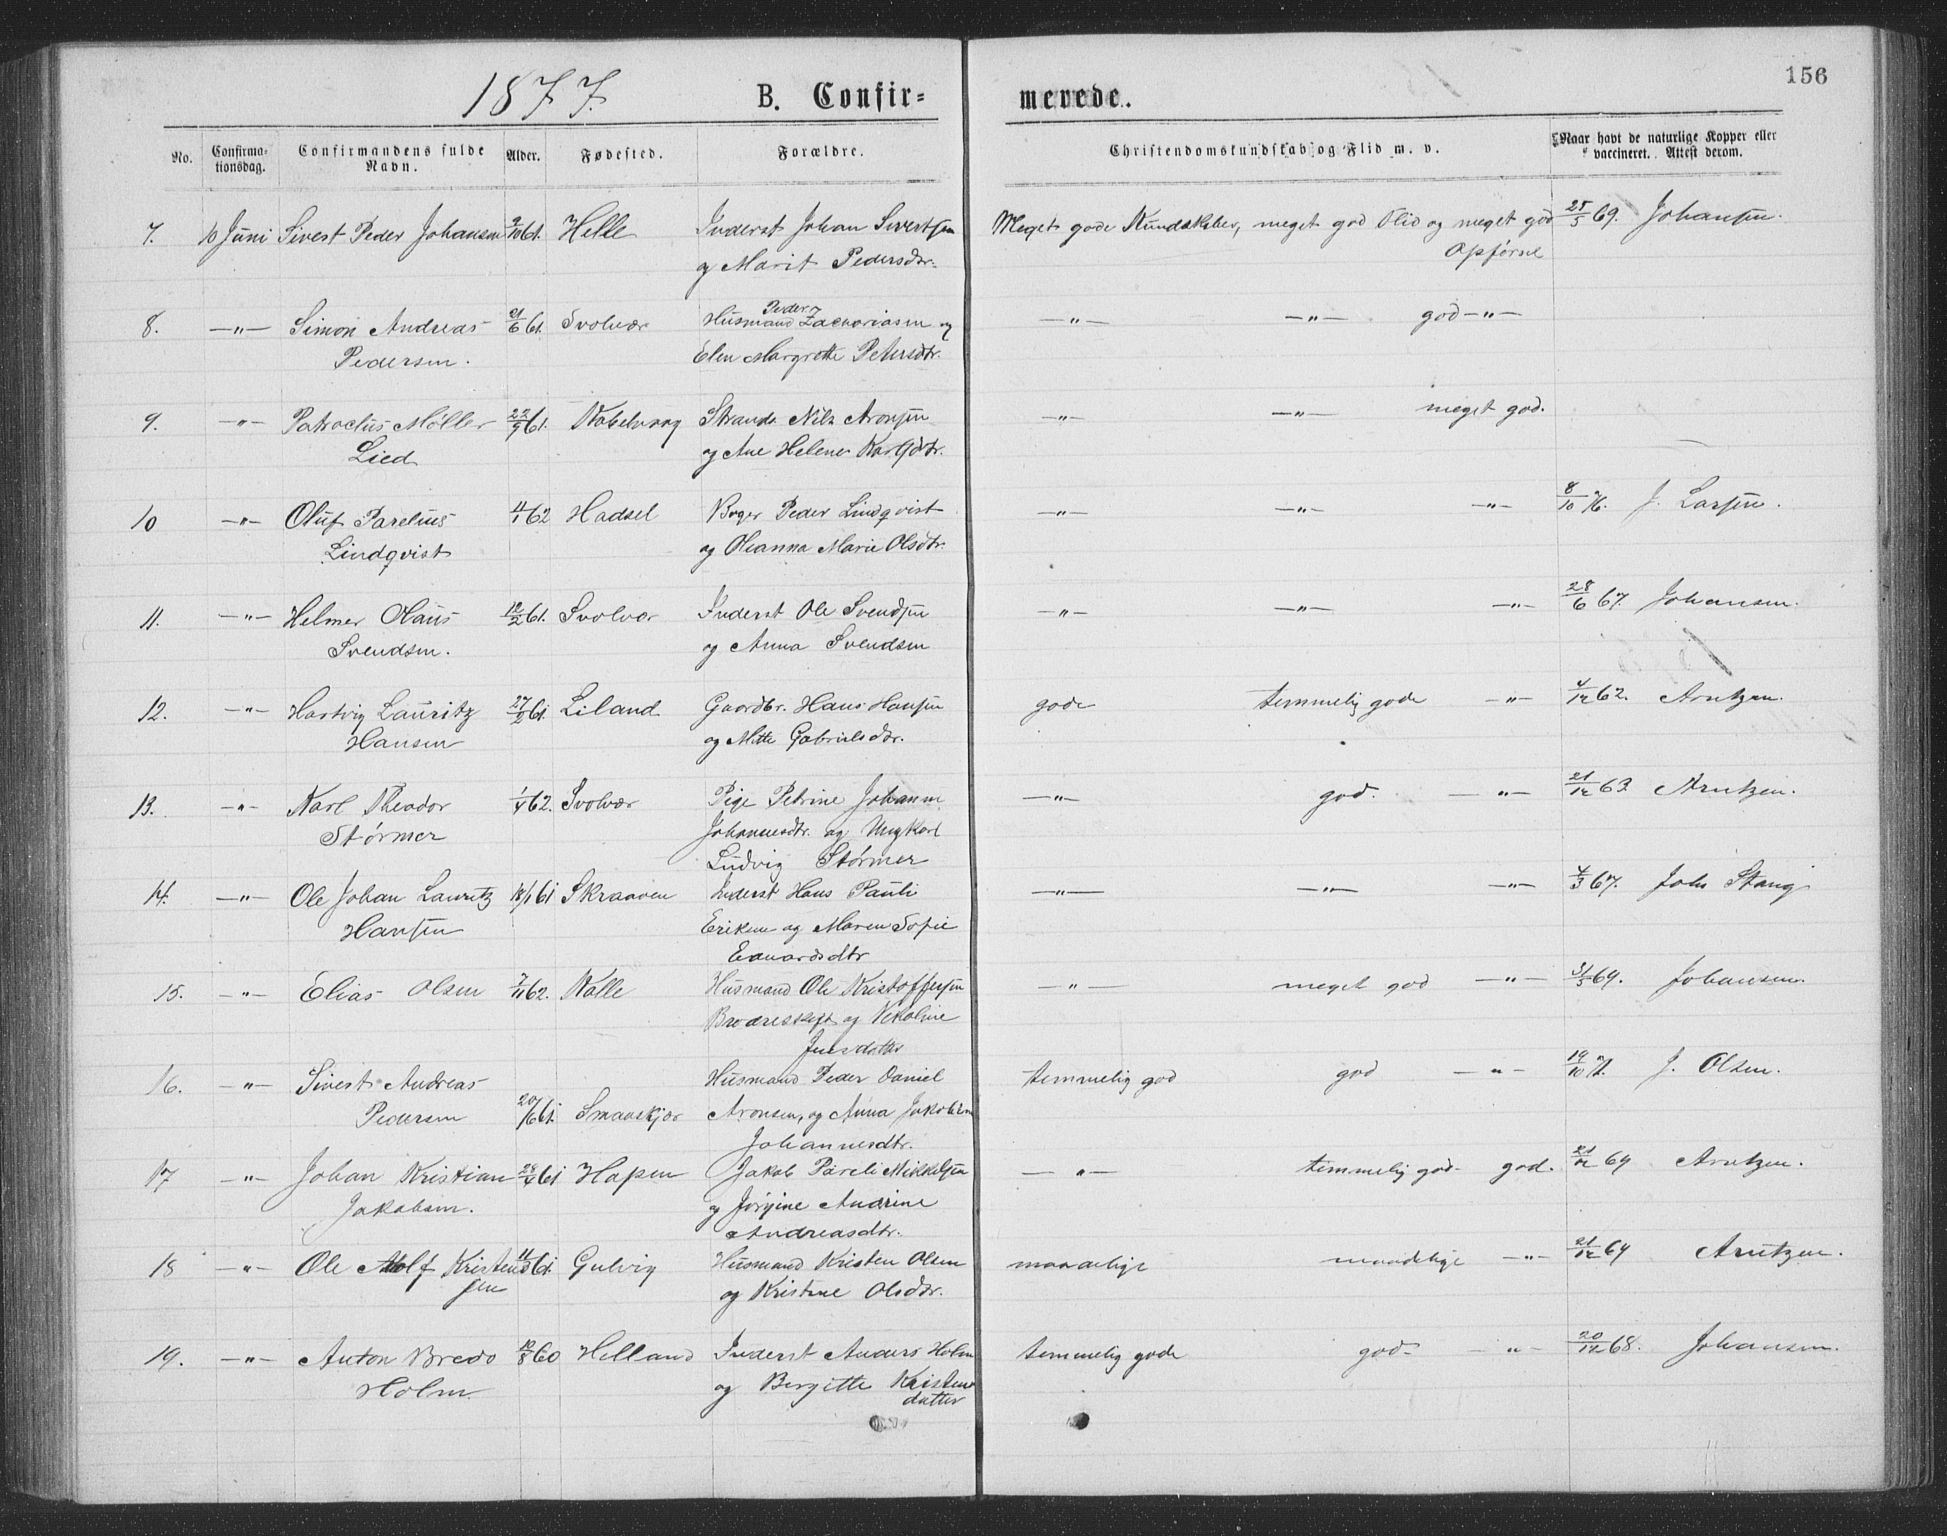 156
1877.
B. Confir= merede.
No. Confirma-tionsdag. Confirmandens fulde Navn. Alder. Fødested. Forældre. Christendomskundskab og Flid m. v. Naar havt de naturlige Kopper eller vaccineret. Attest derom.
7. 10 Juni Sivert Peder Johansen 9/10 61. Helle Inderst Johan Sivertsen Meget gode Kundskaber, meget god Flid og meget god 25/5 69. Johansen.
og Marit Pedersdr. Opførsel
8. —"— Simon Andreas 21/6 61. Svolvær Husmand Peder Zachariasen og —"— —"— god —"—
Pedersen. Elen Margrethe Petersdtr.
9. —"— Patroclus Møller 22/9 61. Kabelvaag Strands. Nils Aronsen —"— —"— meget god.
Lied og Ane Helene Karlsdtr.
10 —"— Oluf Parelius 4/1 62 Hadsel Bøger Peder Lindqvist —"— —"— —"— 8/10 76. J. Larsen.
Lindqvist og Oleanna Marie Olsdtr.
11. —"— Helmer Olaus 12/2 61. Svolvær Inderst Ole Svendsen —"— —"— —"— 28/6 67. Johansen.
Svendsen. og Anna Svendsen
12. —"— Hartvig Lauritz 27/2 61. Liland Gaardbr. Hans Hansen gode temmelig gode —"— 4/12 62. Arntzen.
Hansen og Mette Gabrielsdr.
13. —"— Karl Theodor 1/4 62. Svolvær Pige Petrine Johanne —"— god. —"— 21/12 63 Arntzen.
Størmer Johannesdtr. og Ungkarl
Ludvig Størmer
14. —"— Ole Johan Lauritz 18/1 61 Skraaven Inderst Hans Pauli —"— —"— —"— 4/3 67. Johs Stang
Hansen Eriksen og Maren Sofie
Edvardsdtr
15. —"— Elias Olsen 7/11 62. Kalle Husmand Ole Kristoffersen —"— meget god —"— 31/5 69. Johansen.
Brødreskift og Nikoline
Jensdatter
16. —"— Sivert Andreas Husmand Peder Daniel temmelig god god —"— 19/10 71. J. Olsen.
Pedersen 20/6 61. Smaaskjær Aronsen, og Anna Jakobine
Johannesdtr.
17 —"— Johan Kristian 28/4 61 Hopen Jakob Pareli Mikkelsen —"— temmelig god god. 21/12 64 Arntzen.
Jakobsen. og Jørgine Andrine
Andreasdtr.
18 —"— Ole Adolf Kristen 61. Gulvig Husmand Kristen Olsen maadelige maadelige —"— 21/12 64 Arntzen.
sen og Kristine Olsdtr.
19. —"— Anton Bredo 12/8 60 Helland Inderst Anders Holm temmelig gode god —"— 20/12 68. Johansen.
Holm og Bergitte Kristens
datter